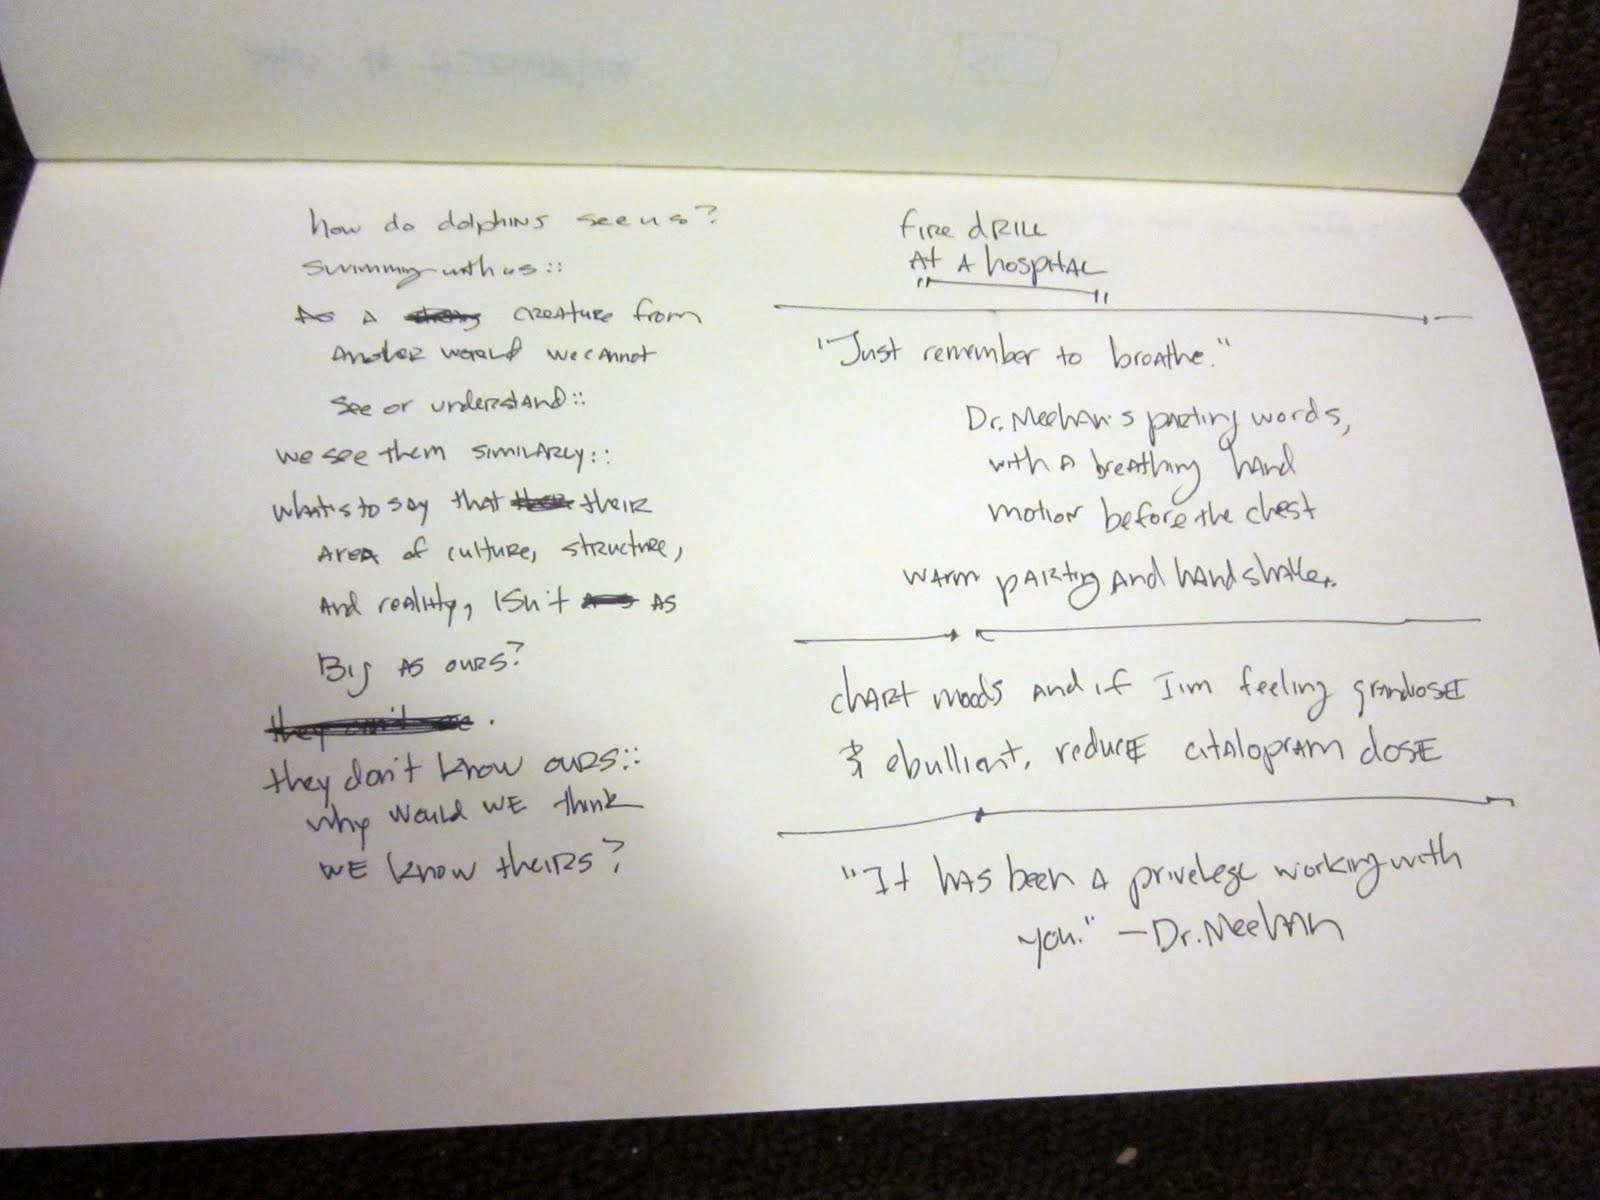 how do dolphins see us?
swimming with us::
As A strong creature from
Another world we cannot
see or understand::
we see them similarly::
what's to say that their their
area of culture, structure,
And reality, isn't as AS
Big as ours?
they can't see.
they don't know ours::
why would we think
we know theirs?
fire drill
At A hospital
"Just remember to breathe."
Dr. Meehan's parting words,
with a breathing hand
motion before the chest
warm parting and handshake.
chart moods and if I'm feeling grandose
& ebullient, reduce citalopram dose
"It has been a privelege working with
you." — Dr. Meehan